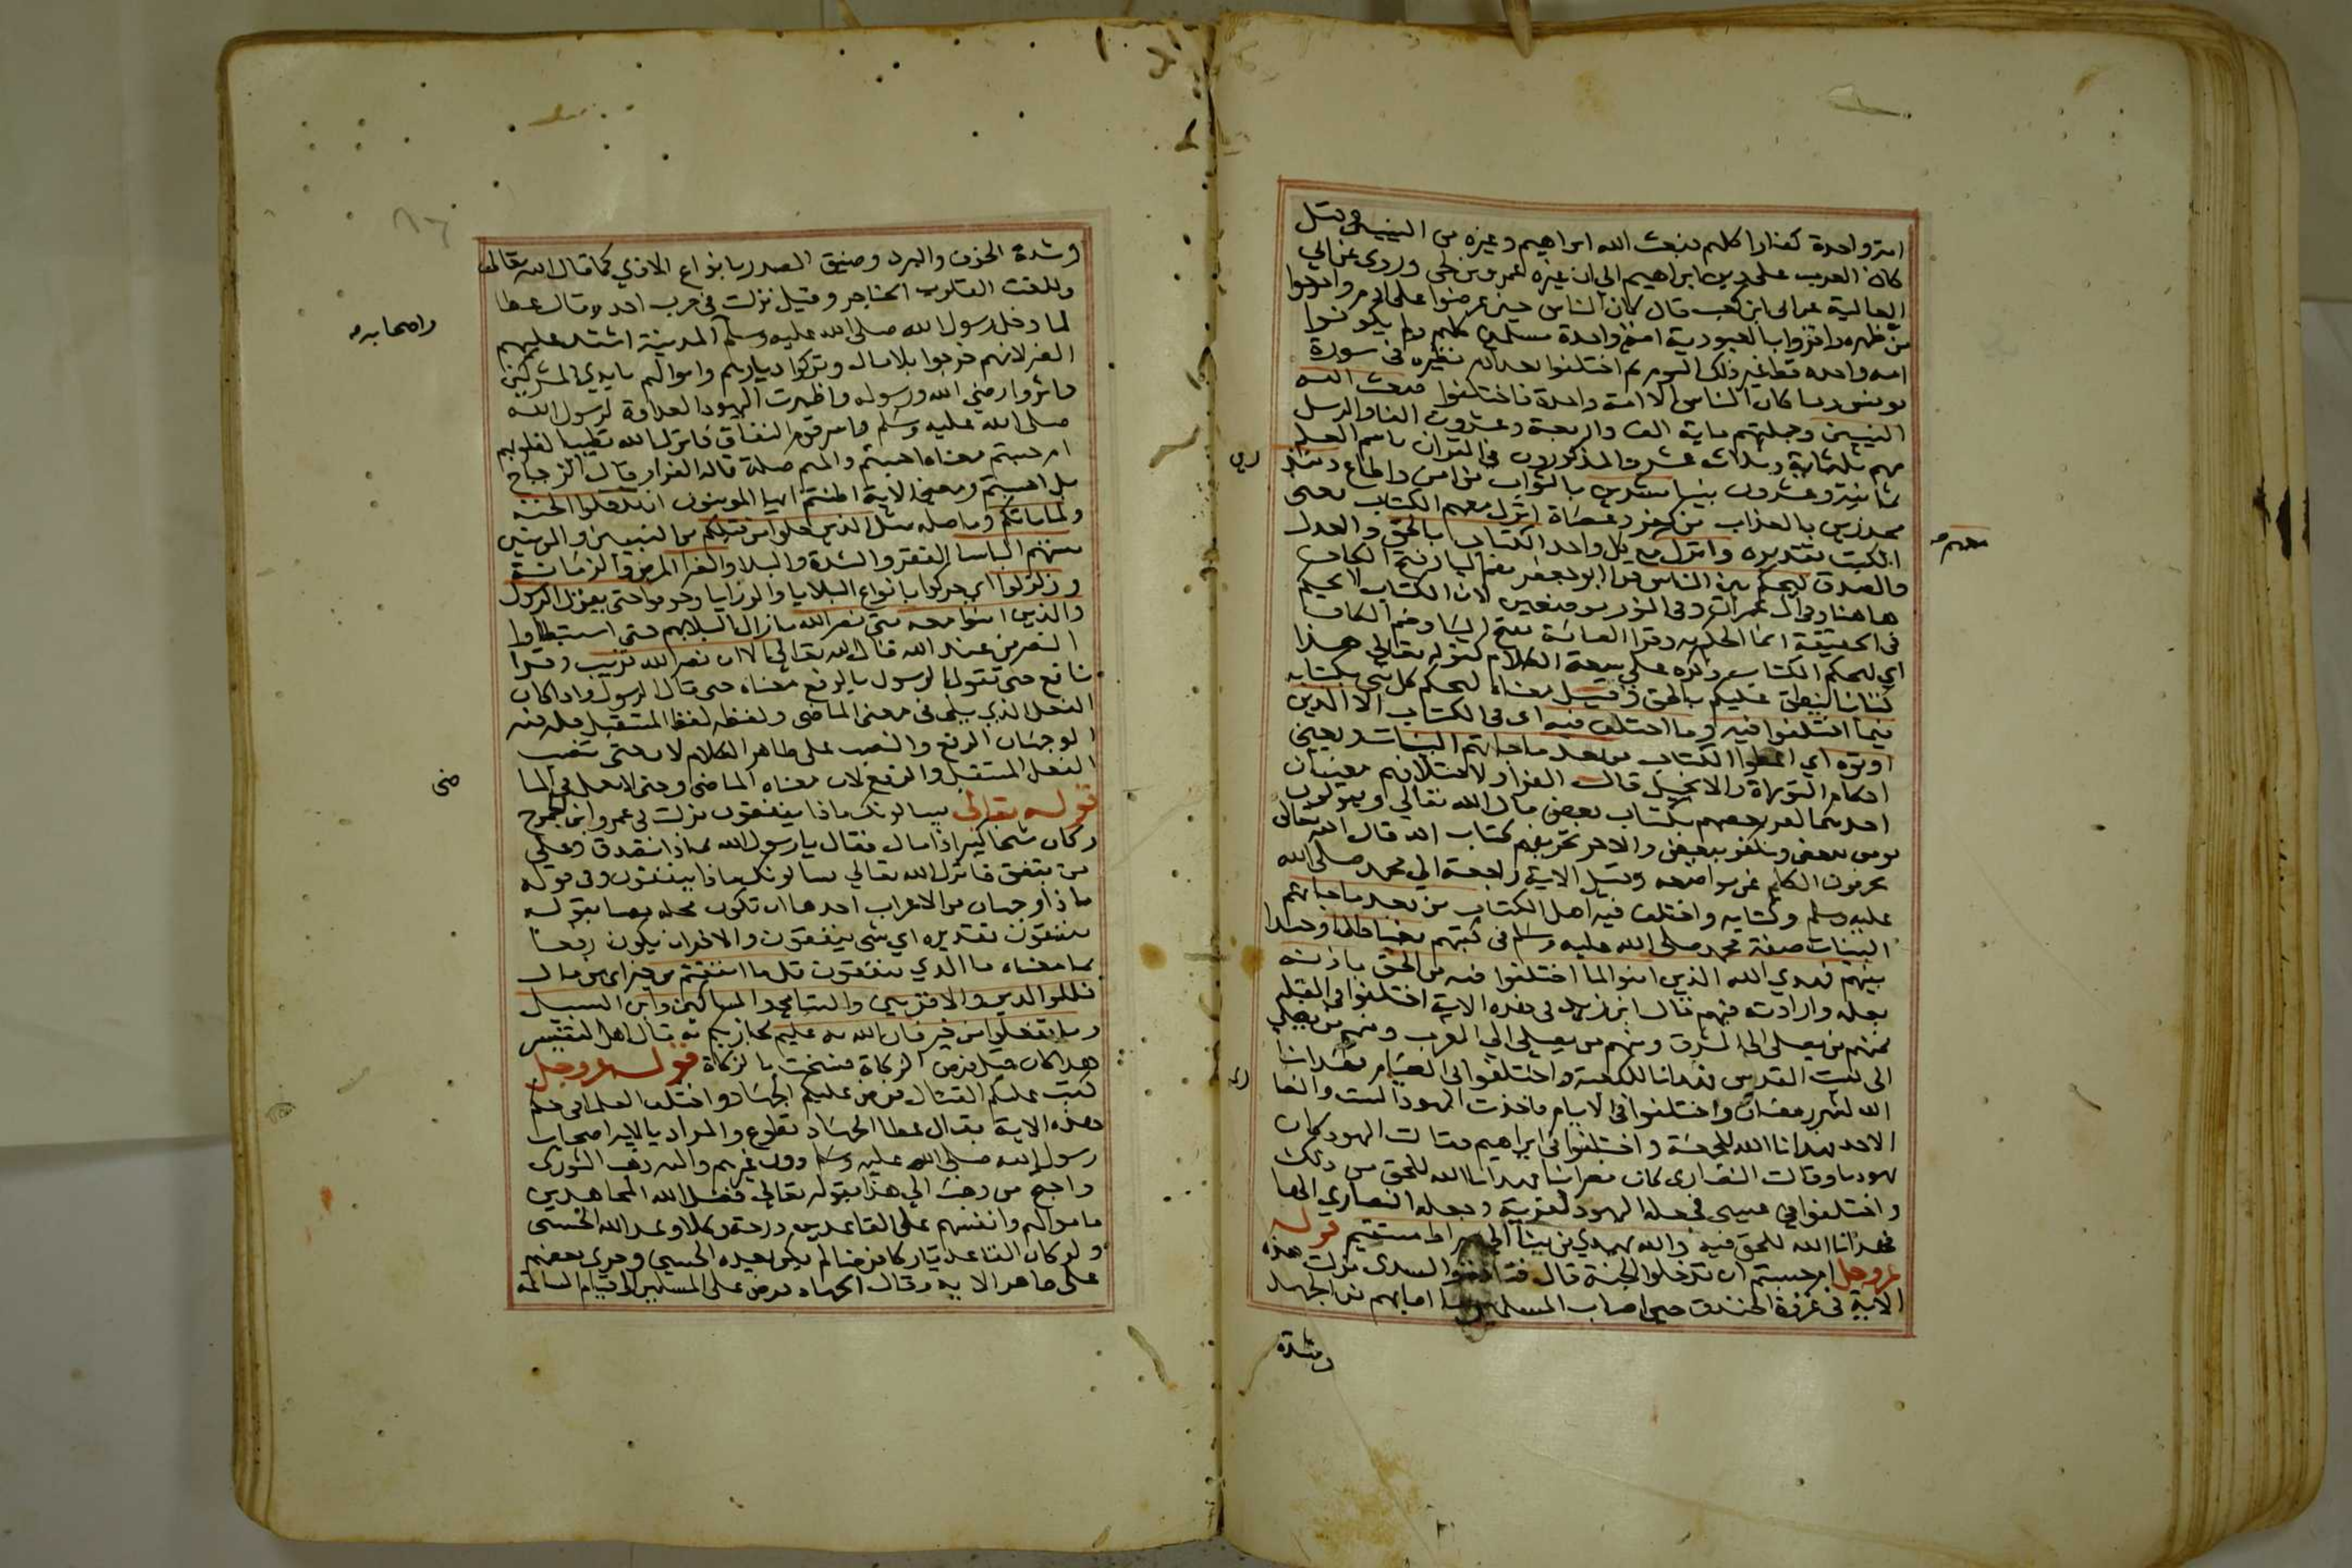 امة واحدة كفارا كلهم فبعث الله ابراهيم وغيره من النبيين وقيل
كان العرب على دين ابراهيم الى ان غيره عمرو بن لحى وروى عن ابي
العالية عن ابى ابن كعب قال كان الناس حين عرضوا على ادم واخرجوا
من ظهره واقروا بالعبودية امة واحدة مسلمين كلهم ولم يكونوا
امه واحده قط غير ذلك اليوم ثم اختلفوا بعد ادم نظيره فى سورة
يونس وما كان الناس الا امة واحدة فاختلفوا فبعث الله
النبيين وجملتهم ماية الف واربعة وعشرون الفا والرسل
منهم ثلثماية وثلاثه عشر والمذكورون في القران باسم العلم
ثمانية وعشرون نبيا مبشرين بالثواب من امن واطاع ومنذ
رين
محذرين بالعذاب من كفر وعصاة انزل معهم الكتاب يعنى
الكتب تقديره وانزل مع كل واحد الكتاب بالحق والعدل
معهم صح
والصدق ليحكم بين الناس قرا ابو جعفر بضم اليا وفتح الكاف
هاهنا وفى ال عمران وفى النور موضعين لان الكتاب لا يحكم
فى الحقيقة انما الحكم به وقرا العامة بفتح اليا وضم الكاف
اي ليحكم الكتاب وذكره على سعة الكلام كقوله تعالى هذا
كتابنا ينطق عليكم بالحق وقيل معناه ليحكم كل نبى بكتابه
فيما اختلفوا فيه وما اختلف فيه اى فى الكتاب الا الذين
اوتوه اي اعطوا الكتاب من بعد ما جاتهم البينات يعني
احكام التوراة والانجيل قال الفرا ولاختلافهم معنيان
احدهما كفر بعضهم بكتاب بعض قال الله تعالى ويقولون
نومن ببعض ونكفر ببعض والاخر تحريفهم كتاب الله قال الله تعالى
يحرفون الكلم عن مواضعه وقيل الاية راجعة الى محمد صلى الله
عليه وسلم وكتابه واختلف فيه اهل الكتاب من بعد ما جاتهم
البينات صفة محمد صلى الله عليه وسلم فى كتبهم بغيا ظلما وحسدا
بينهم فهدي الله الذين امنوا لما اختلفوا فيه من الحق باذنه
بعلمه وارادته فيهم قال ابن زيد فى هذه الاية اختلفوا فى القبلة
فمنهم من يصلى الى المشرق ومنهم من يصلى الى المغرب ومنهم من يصلي
الى بيت المقدس فهدانا للكعبة واختلفوا فى الصيام فهدانا
الله لشهر رمضان واختلفوا فى الايام فاخذت اليهود السبت والنصا
رى
الاحد فهدانا الله للجمعة واختلفوا فى ابراهيم فقالت اليهود كان
يهوديا وقالت النصارى كان نصرانيا فهدانا الله للحق من ذلك
واختلفوا فى عيسى فجعله اليهود لفرية وجعله النصارى الها
فهدانا الله للحق فيه والله يهدي من يشا الى صراط مستقيم قوله
عز وجل ام حسبتم ان تدخلوا الجنة قال قتادة والسدى نزلت هذه
الاية فى غزوة الخندق حين اصاب المسلمين ما اصابهم من الجهد
وشدة
وشدة الخوف والبرد وضيق الصدر بانواع الاذي كما قال الله تعالى
وبلغت القلوب الحناجر وقيل نزلت فى حرب احد وقال عطا
لما دخل رسول الله صلى الله عليه وسلم المدينة اشتد عليهم
واصحابه صح
الضر لانهم خرجوا بلا مال وتركوا ديارهم واموالهم بايدي المشركين
واثروا رضي الله ورسوله واظهرت اليهود العداوة لرسول الله
صلى الله عليه وسلم واسر قوم النفاق فانزل الله تطييبا لقلوبهم
ام حسبتم معناه احسبتم والميم صلة قاله الفرا وقال الزجاج
بل احسبتم ومعنى الاية اظننتم ايها المومنون ان تدخلوا الجنة
ولما ياتكم وما صله مثل الذين خلوا من قبلكم من النبيين والمومنين
مستهم الباسا الفقر والشدة والبلا والضرا المرض والزمانة
وزلزلوا اي حركوا بانواع البلايا والرزايا وخوفوا حتى يقول الرسول
والذين امنوا معه متى نصر الله ما زال البلا بهم حتى استبطاوا
النصر من عند الله قال الله تعالى الا ان نصر الله قريب وقرا
نافع حتى يقول الرسول بالرفع معناه حتى قال الرسول واذا كان
الفعل الذي يلى فى معنى الماضى ولفظه لفظ المستقبل فله فيه
الوجهان الرفع والنصب على ظاهر الكلام لان حتى تنصب
الفعل المستقبل والرفع لان معناه الماضى وحتى لا يعمل فى الما
ضى
قوله تعالى يسالونك ماذا ينفقون نزلت فى عمرو ابن الجموح
وكان شيخا كبيرا ذا مال فقال يا رسول الله بماذا نتصدق وعلى
من ينفق فانزل الله تعالى يسالونك ماذا ينفقون وفى قوله
ماذا وجهان من الاعراب احدهما ان تكون محله نصبا بقوله
ينفقون تقديره اي شى ينفقون والاخر ان يكون رفعا
بما معناه ما الذي ينفقون قل ما انفقتم من خير اى من مال
فللوالدين والاقربين واليتامى والمساكين وابن السبيل
وما تفعلوا من خير فان الله به عليم يجازيكم به قال اهل التفسير
هذا كان قبل فرض الزكاة فنسخت بالزكاة قوله عز وجل
كتب عليكم القتال فرض عليكم الجهاد واختلف العلما فى حكم
هذه الاية فقال عطا الجهاد تطوع والمراد بالاية اصحاب
رسول الله صلى الله عليه وسلم دون غيرهم واليه ذهب الثورى
واحتج من ذهب الى هذا بقوله تعالى فضل الله المجاهدين
باموالهم وانفسهم على القاعدين درجة وكلا وعد الله الحسنى
ولو كان القاعد تاركا فرضا لم يكن يعده الحسني وجرى بعضهم
على ظاهر الاية وقال الجهاد فرض على المسلمين الى قيام الساعة